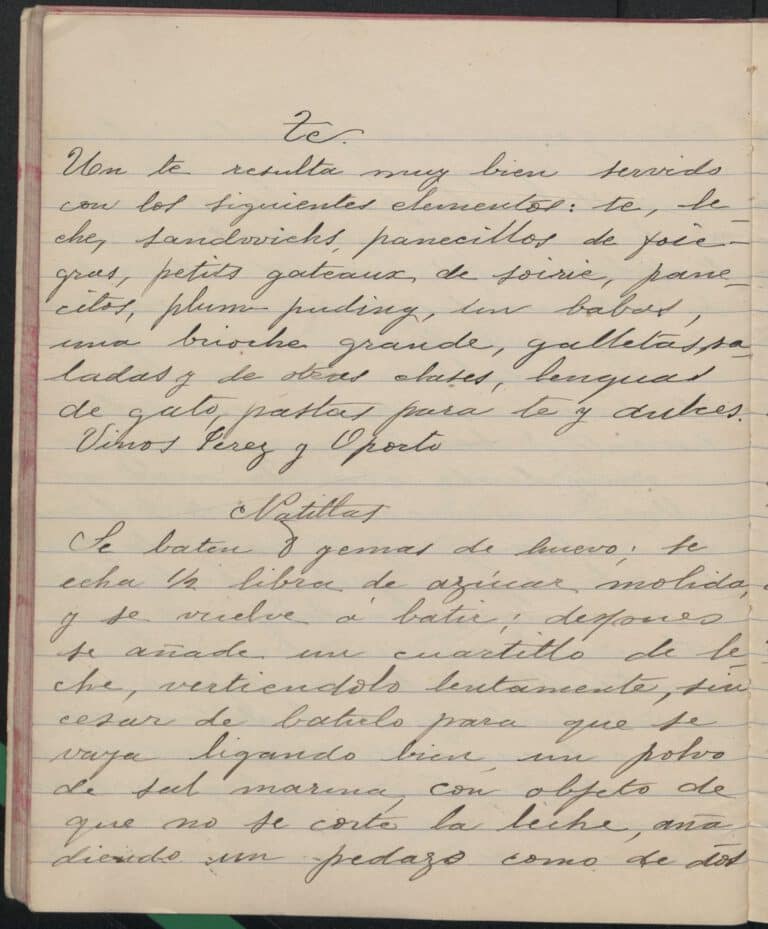 Te.
Un te resulta muy bien servido
con los siguientes elementos: te, le-
che, sandwichs, panecillos de foie-
gras, petits gateaux de soirie, pane-
citos, plum puding, un babas,
una brioche grande, galletas sa-
ladas y de otras clases, lenguas
de gato, pastas para te y dulces.
Vinos Jerez y Oporto
Natillas
Se baten 8 yemas de huevo; se
echa 1/2 libra de azúcar molida,
y se vuelve á batir; despues
se añade un cuartillo de le-
che, vertiendolo lentamente, sin
cesar de batirlo para que se
vaya ligando bien, un polvo
de sal marina, con objeto de
que no se corte la leche, aña
diendo un pedazo como de dos